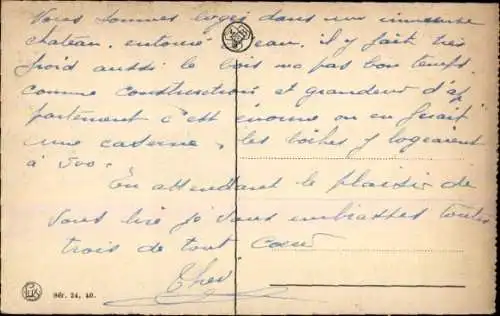 Nous sommes logés dans un immense
chateau, entouré d'eau. il y fait très
froid aussi le bois na pas bon temps.
comme construction et grandeur d'ap
partement c'est énorme on en ferait
une caserne, les boches y logeaient
à 500.
En attendant le plaisir de
vous lire je vous embrasses toutes
trois de tout coeur
Sér. 24, 40.